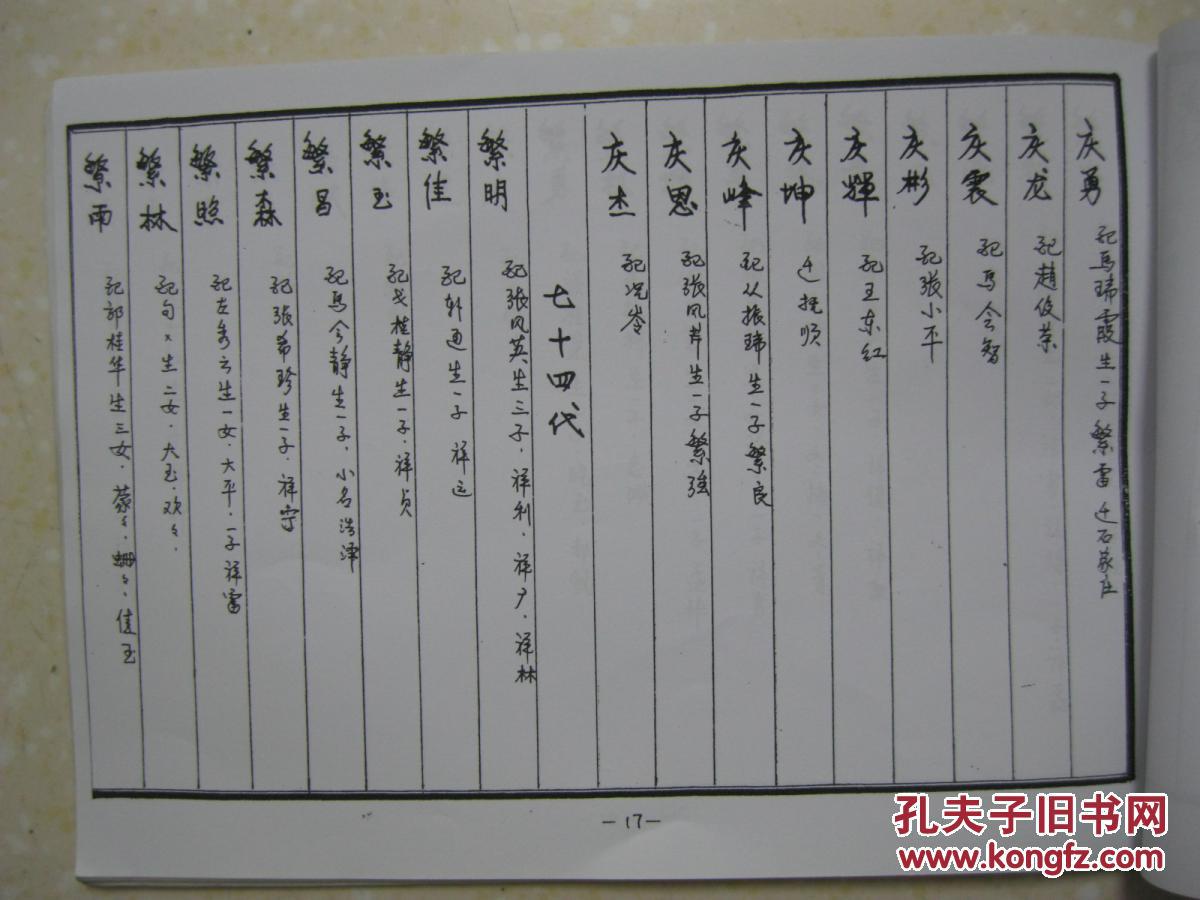 庆勇 配马瑞霞生一子繁雷迁石家庄
庆龙 配赵俊荣
庆震 配马会智
庆彬 配张小平
庆輝 配王东红
庆坤 迁抚顺
庆峰 配从振瑞生一子繁良
庆思 配张凤芹生一子繁强
庆杰 配况岺
七十四代
繁明 配张凤英生三子．祥利．祥户．祥林
繁佳 配 通生一子 祥运
繁玉 配戈桂静生一子．祥贞
繁昌 配馬令静生一子．小名浩泽
繁森 配张希珍生一子．祥宇
繁照 配左秀云生一女．大平．一子祥雷
繁林 配句×生二女．大玉．欢々．
繁雨 配郭桂华生三女．蒙々．姗々．佳玉
—17—
孔夫子旧书网
www.kongfz.com